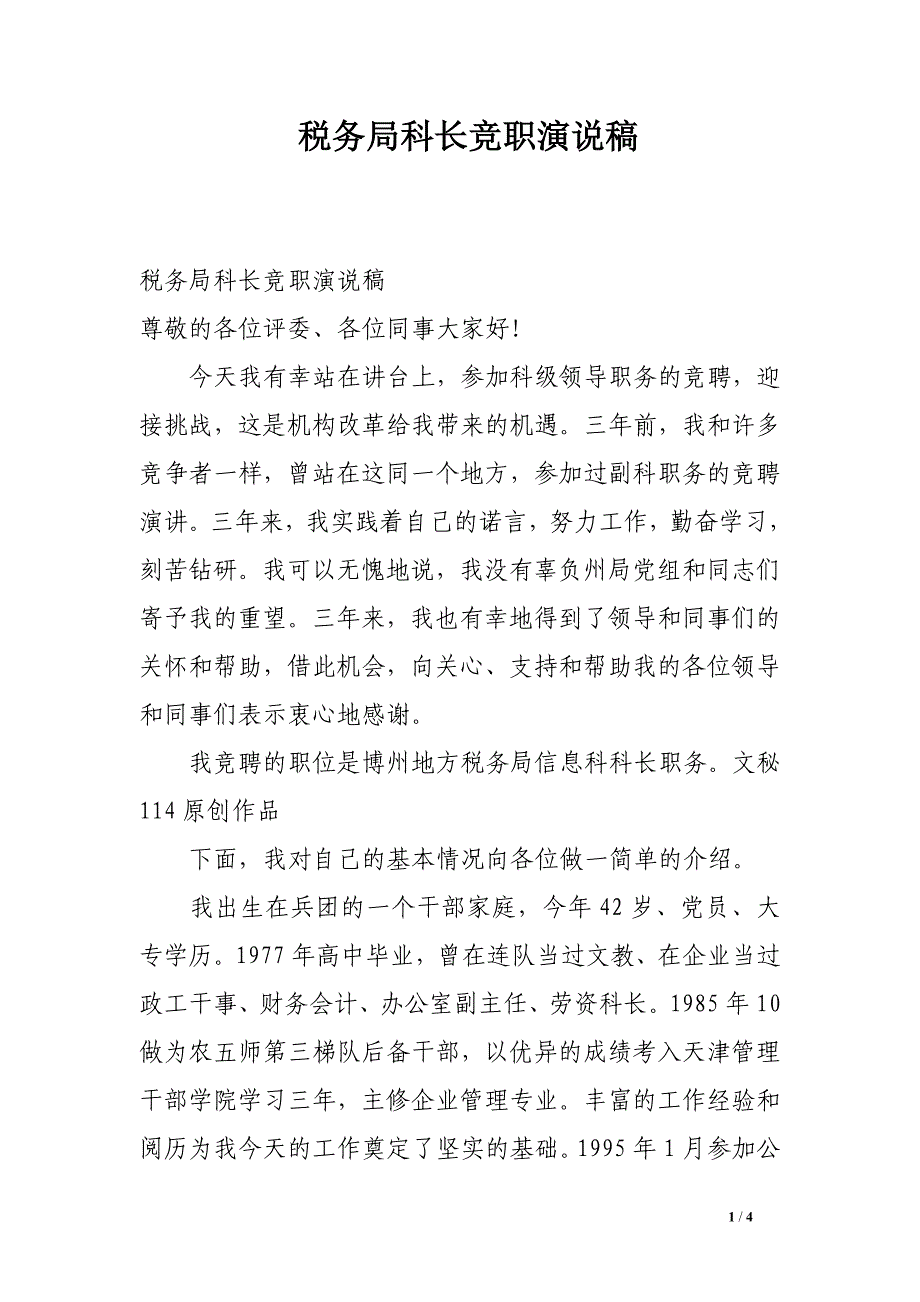 税务局科长竞职演说稿
税务局科长竞职演说稿
尊敬的各位评委、各位同事大家好！
今天我有幸站在讲台上，参加科级领导职务的竞聘，迎
接挑战，这是机构改革给我带来的机遇。三年前，我和许多
竞争者一样，曾站在这同一个地方，参加过副科职务的竞聘
演讲。三年来，我实践着自己的诺言，努力工作，勤奋学习，
刻苦钻研。我可以无愧地说，我没有辜负州局党组和同志们
寄予我的重望。三年来，我也有幸地得到了领导和同事们的
关怀和帮助，借此机会，向关心、支持和帮助我的各位领导
和同事们表示衷心地感谢。
我竞聘的职位是博州地方税务局信息科科长职务。文秘
114 原创作品
下面，我对自己的基本情况向各位做一简单的介绍。
我出生在兵团的一个干部家庭，今年 42 岁、党员、大
专学历。1977 年高中毕业，曾在连队当过文教、在企业当过
政工干事、财务会计、办公室副主任、劳资科长。1985 年 10
做为农五师第三梯队后备干部，以优异的成绩考入天津管理
干部学院学习三年，主修企业管理专业。丰富的工作经验和
阅历为我今天的工作奠定了坚实的基础。1995 年 1 月参加公
1 / 4